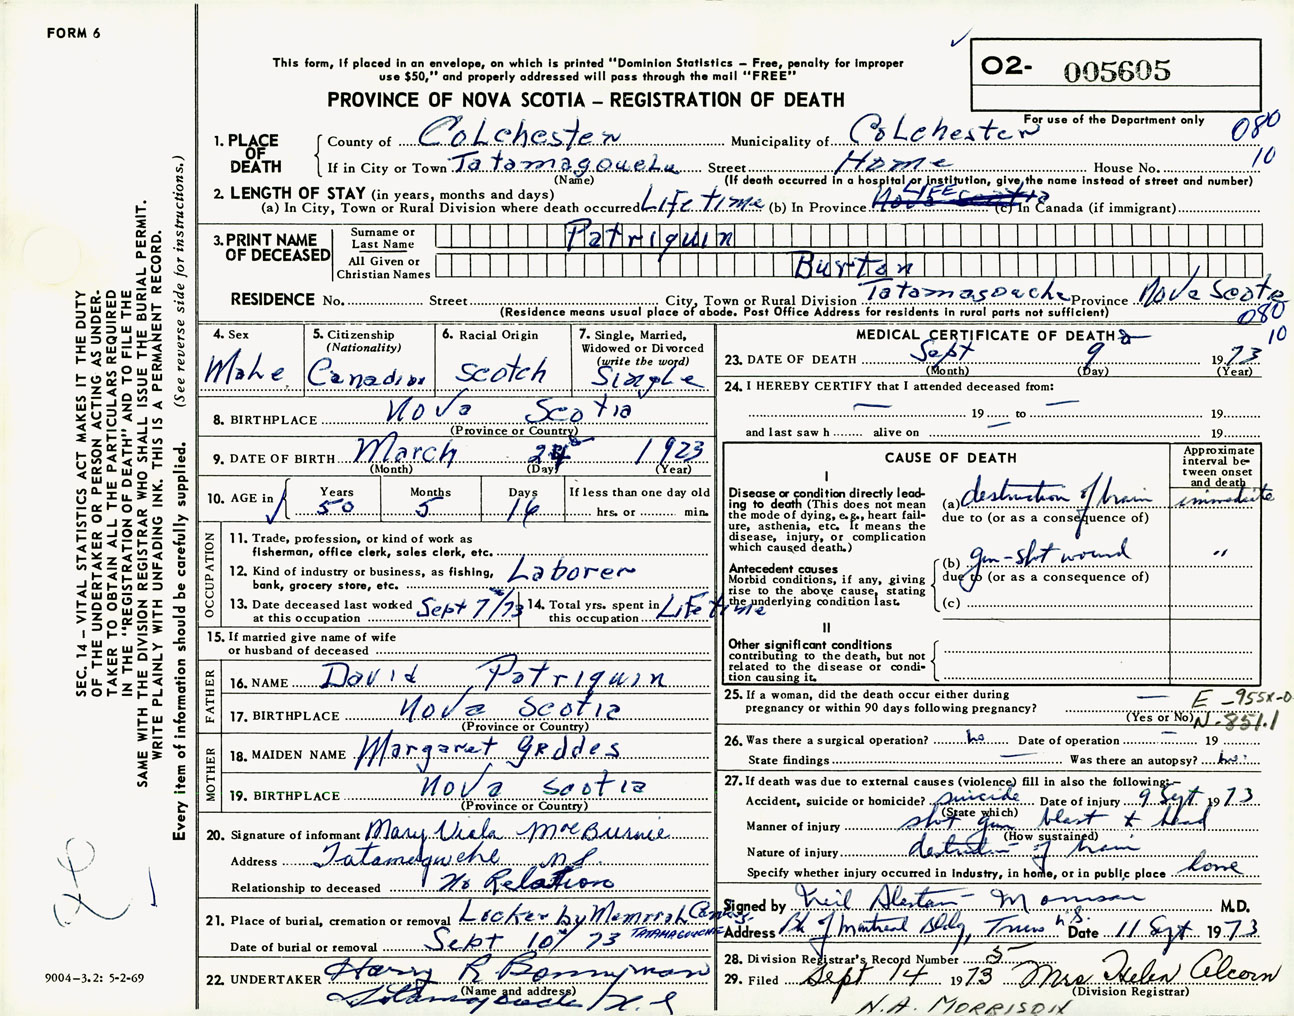 FORM 6
This form, if placed in an envelope, on which is printed "Dominion Statistics – Free, penalty for improper
use $50," and properly addressed will pass through the mail "FREE"
PROVINCE OF NOVA SCOTIA – REGISTRATION OF DEATH
O2- 005605
For use of the Department only
080
10
1. PLACE OF DEATH
County of Colchester Municipality of Colchester
If in City or Town Tatamagouche Street Home House No.
(Name) (If death occurred in a hospital or institution, give the name instead of street and number)
2. LENGTH OF STAY (in years, months and days)
(a) In City, Town or Rural Division where death occurred Life time (b) In Province LIFE (c) In Canada (if immigrant)
3. PRINT NAME OF DECEASED
Surname or Last Name Patriquin
All Given or Christian Names Burton
RESIDENCE No. Street City, Town or Rural Division Tatamagouche Province Nova Scotia
(Residence means usual place of abode. Post Office Address for residents in rural parts not sufficient)
080
10
4. Sex Male
5. Citizenship (Nationality) Canadian
6. Racial Origin Scotch
7. Single, Married, Widowed or Divorced (write the word) Single
8. BIRTHPLACE Nova Scotia
(Province or Country)
9. DATE OF BIRTH March 24 1923
(Month) (Day) (Year)
10. AGE in Years 50 Months 5 Days 16 If less than one day old hrs. or min.
OCCUPATION
11. Trade, profession, or kind of work as
fisherman, office clerk, sales clerk, etc.
12. Kind of industry or business, as fishing,
bank, grocery store, etc. Laborer
13. Date deceased last worked at this occupation Sept 7/73
14. Total yrs. spent in this occupation Life time
15. If married give name of wife
or husband of deceased
FATHER
16. NAME David Patriquin
17. BIRTHPLACE Nova Scotia
(Province or Country)
MOTHER
18. MAIDEN NAME Margaret Geddes
19. BIRTHPLACE Nova Scotia
(Province or Country)
20. Signature of informant Mary Viola MacBurnie
Address Tatamagouche N.S.
Relationship to deceased No Relation
21. Place of burial, cremation or removal Lockerby Memorial
TATAMAGOUCHE
Date of burial or removal Sept 10 73
22. UNDERTAKER Harry R Bonnyman
(Name and address)
Tatamagouche N.S
MEDICAL CERTIFICATE OF DEATH
23. DATE OF DEATH Sept 9 1973
(Month) (Day) (Year)
24. I HEREBY CERTIFY that I attended deceased from:
— 19 — to — 19
and last saw h alive on — 19
CAUSE OF DEATH
Approximate interval between onset and death
I
Disease or condition directly leading to death (This does not
mean the mode of dying, e.g., heart failure, asthenia, etc. It means the
disease, injury, or complication
which caused death.)
(a) destruction of brain immediate
due to (or as a consequence of)
Antecedent causes
Morbid conditions, if any, giving
rise to the above cause, stating
the underlying condition last.
(b) gun-shot wound "
due to (or as a consequence of)
(c)
II
Other significant conditions
contributing to the death, but not
related to the disease or condition causing it.
25. If a woman, did the death occur either during
pregnancy or within 90 days following pregnancy? —
(Yes or No)
E-955X-0
N-851.1
26. Was there a surgical operation? no Date of operation — 19
State findings — Was there an autopsy? no.
27. If death was due to external causes (violence) fill in also the following:—
Accident, suicide or homicide? suicide Date of injury 9 Sept 1973
(State which)
Manner of injury shot gun blast to head
(How sustained)
Nature of injury destruction of brain
Specify whether injury occurred in industry, in home, or in public place home
Signed by Neil Alastair Morrison M.D.
Address Bk of Montreal Bldg, Truro N.S. Date 11 Sept 1973
28. Division Registrar's Record Number 5
29. Filed Sept 14 1973 Mrs Helen Alcorn
(Division Registrar)
N.A. MORRISON
SEC. 14 – VITAL STATISTICS ACT MAKES IT THE DUTY
OF THE UNDERTAKER OR PERSON ACTING AS UNDER-
TAKER TO OBTAIN ALL THE PARTICULARS REQUIRED
IN THE "REGISTRATION OF DEATH" AND TO FILE THE
SAME WITH THE DIVISION REGISTRAR WHO SHALL ISSUE THE BURIAL PERMIT.
WRITE PLAINLY WITH UNFADING INK. THIS IS A PERMANENT RECORD.
Every item of information should be carefully supplied. (See reverse side for instructions.)
9004-3.2: 5-2-69